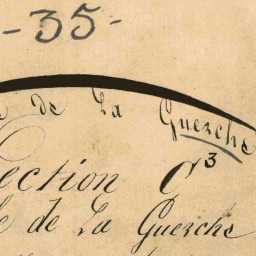 - 35 -
de La Guerche
ection C³
de La Guerche